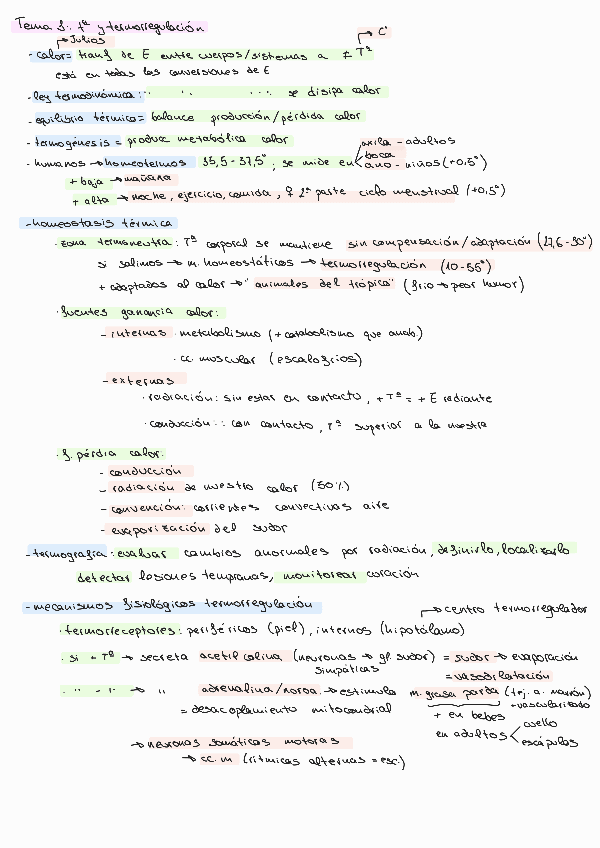 Tema 1: tª y termorregulación
→ Julios
→ Cº
- calor = transf de E entre cuerpos/sistemas a ≠ Tª
está en todas las conversiones de E
- ley termodinámica: " " ... se disipa calor
- equilibrio térmico = balance producción/pérdida calor
- termogénesis = produce metabólica calor
- humanos → homeotermos 35,5-37,5º; se mide en axila - adultos
boca
ano - niños (+0,5º)
+ baja → mañana
+ alta → noche, ejercicio, comida, ♀ 2ª parte ciclo menstrual (+0,5º)
- homeostasis térmica
· zona termoneutra: Tª corporal se mantiene sin compensación/adaptación (27,6-30º)
si salimos → m. homeostáticos → termorregulación (10-55º)
+ adaptados al calor → "animales del trópico" (frio → peor humor)
· fuentes ganancia calor:
- internas · metabolismo (+ catabolismo que anab.)
· cc. muscular (escalofríos)
- externas
· radiación: sin estar en contacto, + Tª = + E radiante
· conducción: con contacto, Tª superior a la nuestra
· f. pérdia calor:
- conducción
- radiación de nuestro calor (50%)
- convención: corrientes convectivas aire
- evaporización del sudor
- termografía: evaluar cambios anormales por radiación, definirlo, localizarlo
detectar lesiones tempranas, monitorear curación
- mecanismos fisiológicos termorregulación
→ centro termorregulador
· termorreceptores: periféricos (piel), internos (hipotálamo)
· si + Tª → secreta acetilcolina (neuronas → gl. sudor) = sudor → evaporación
simpáticas
= vasodilatación
· " - " → " adrenalina/noroa. → estimula m. grasa parda (tej. a. marrón)
+ vascularizado
= desacoplamiento mitocondrial
+ en bebes
en adultos cuello
escápulas
→ neuronas somáticas motoras
→ cc. m (rítmicas alternas = esc.)